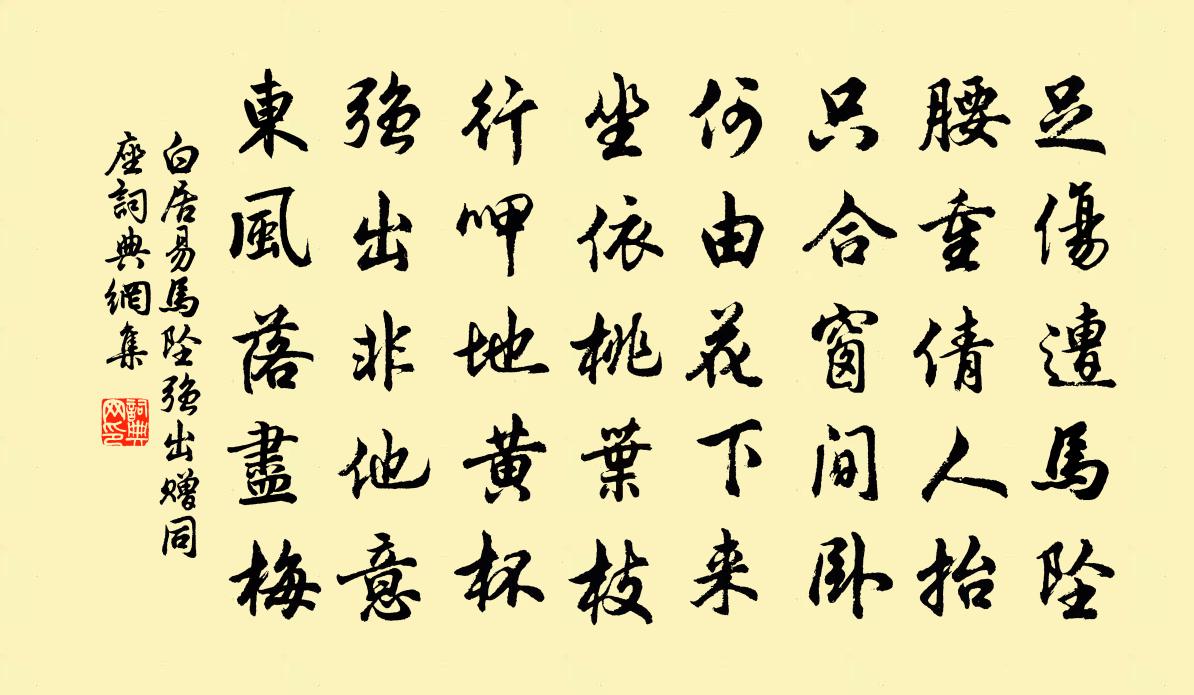 足傷遭馬坠
腰重倩人抬
只合窗间卧
何由花下来
坐依桃葉枝
行呷地黄杯
強出非他意
東風落盡梅
白居易馬坠強出赠同
座詞典網集
詞典
网印